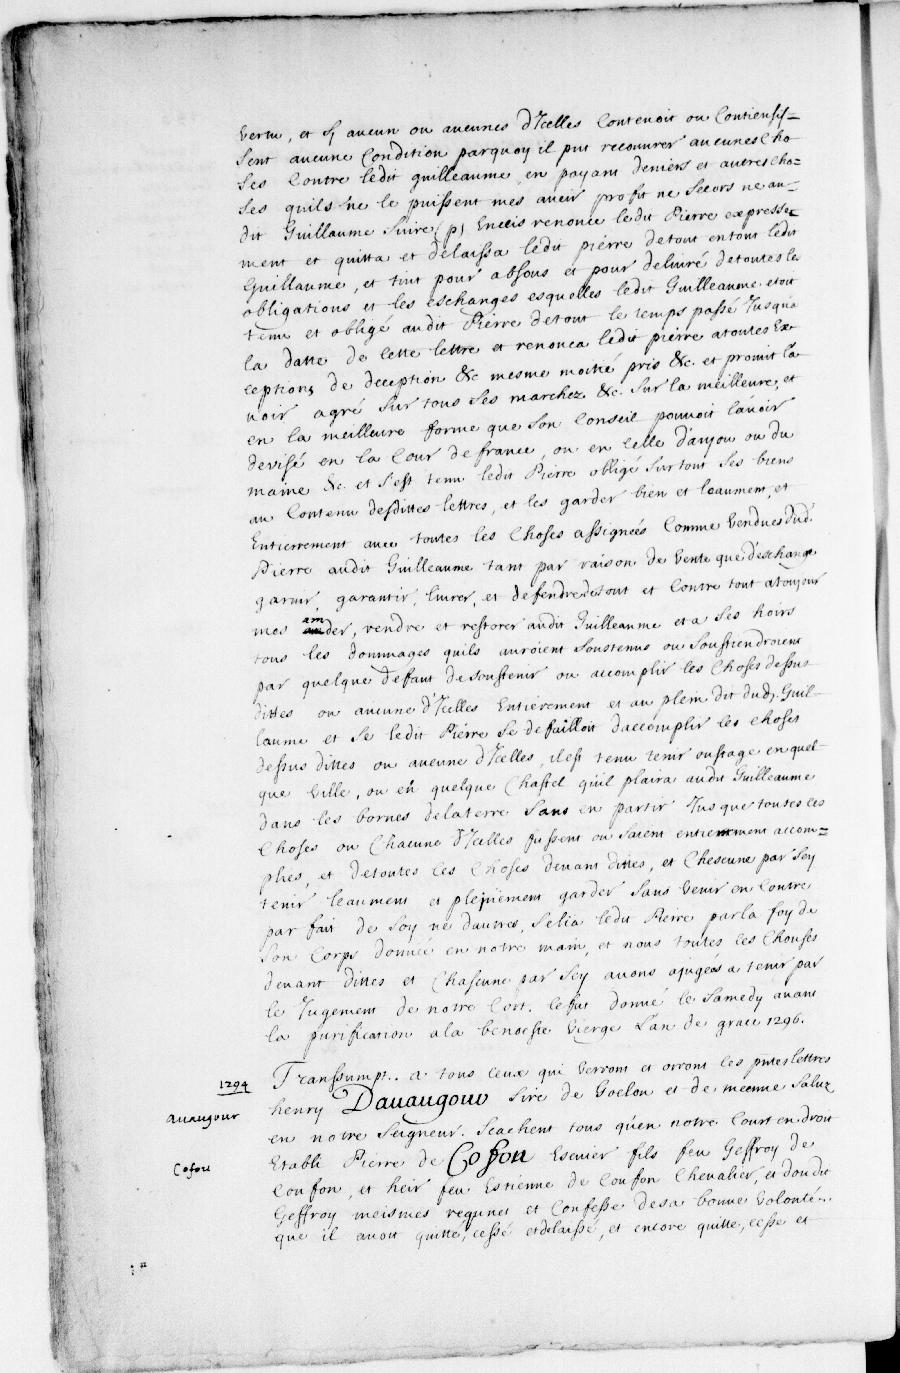 vertu, et sy aucun ou aucunes d'Icelles Contenoit ou Contiensis=
sent aucune Condition parquoy il put recouvrer aucunes Cho
ses Contre ledit guilleaume en payant deniers et autres Cho=
ses quils ne le puissent mes aueir profit ne secors ne au=
dit Guillaume Suire (p) Enceis renonce ledit Pierre expresse=
ment et quitta et delaissa ledit pierre detout entout ledit
Guillaume, et tint pour absous et pour delivré detoutes les
obligations et les eschanges esquelles ledit Guilleaume etoit
tenu et obligé audit Pierre detout le temps passé Jusqua
la datte de Cette lettre et renonca ledit pierre atoutes Ex
ceptions de deception &c mesme moitié pris &c. et promit la
uoir agré sur tous ses marchez &c. sur la meilleure, et
en la meilleure forme que son Conseil pouvoit lauoir
devisé en la Cour de france, ou en Celle d'anjou ou du
maine &c. et s'est tenu ledit Pierre obligé surtout ses biens
au Contenu desdittes lettres, et les garder bien et leaument, et
Entierrement avec toutes les Choses assignées Comme Vendues dud.
Pierre audit Guilleaume tant par raison de Vente que d'eschange
garnir, garantir, livrer, et defendre detout et Contre tout atoujour
mes amder, rendre et restorer audit Guilleaume et a ses hoirs
tous les dommages quils auroient soustenus ou soustiendroient
par quelque deffaut desoustenir ou accomplir les Choses dessus
dittes ou aucune d'Icelles Entierement et au plein dit dud. Guil-
laume et se ledit Pierre se defailloit daccomplir les choses
dessus dittes ou aucune d'Icelles, ilest tenu tenir oustage en quel-
que Ville, ou en quelque Chastel qu'il plaira audit Guilleaume
dans les bornes delaterre sans en partir Jusque toutes les
Choses ou Chacune d'Icelles fussent ou soient entierement accom=
plies, et detoutes les Choses devant dittes, et Chescune par soy
tenir leaument et pleinement garder sans Venir en Contre
par fait de soy ne dautres, selia ledit Pierre par la foy de
son Corps donnée en notre main, et nous toutes les Chouses
devant dittes et Chascune par sey avons ajugées a tenir par
le Jugement de notre Cort. Cefut donné le Samedy avant
la purification ala benoeste Vierge L'an de grace 1296.
1294
Transsumpt.. a tous Ceux qui Verront et orront les pntes lettres
avaugour
henry Davaugour sire de Goelou et de meenne saluz
en notre seigneur. Scachent tous qu'en notre Court en droit
Cofon
Etabli Pierre de Cofon Escuier fils feu Geffroy de
Coufon, et heir feu Estienne de Coufon Chevalier, et dou dit
Geffroy meismes requnet et Confesse desa bonne Volonté..
que il avoit quitté, cessé et delaissé, et encore quitte, cesse et